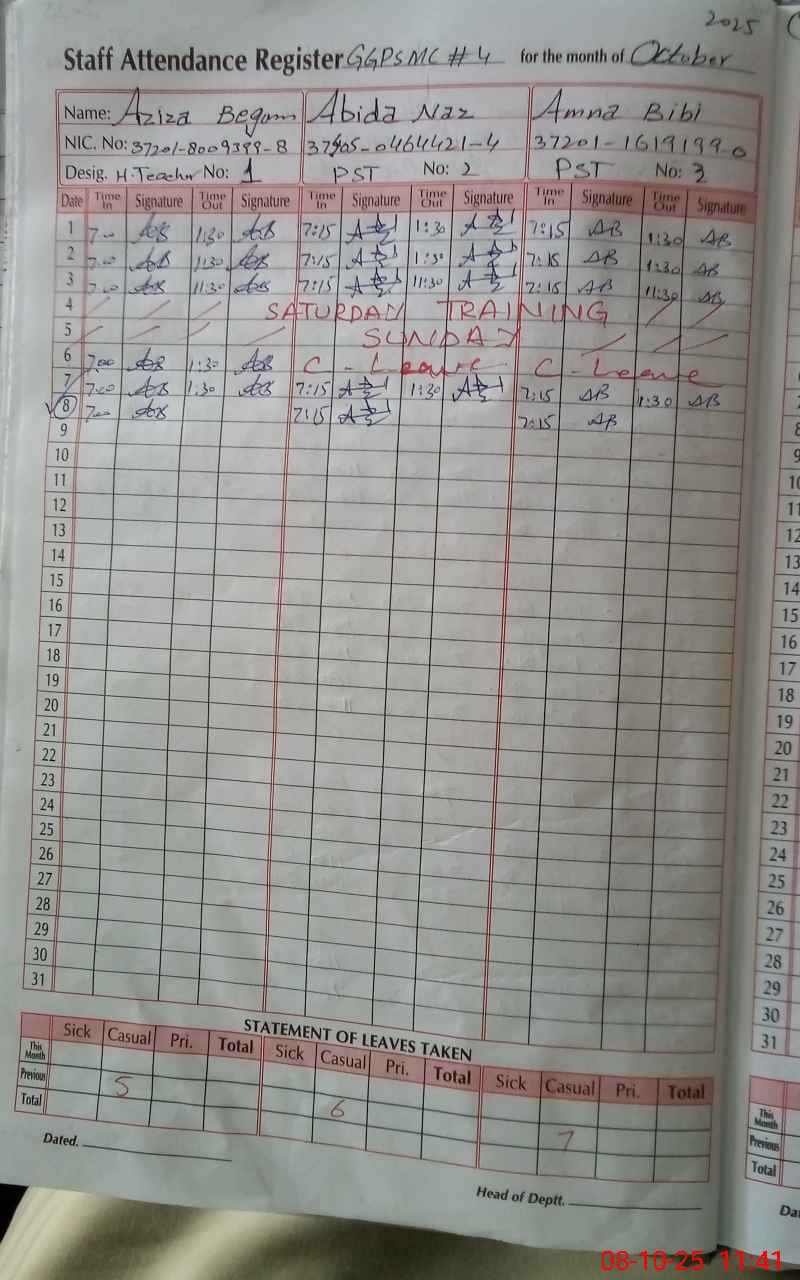 2025
Staff Attendance Register GGPSMC #4 for the month of October
Name: Aziza Begom Abida Naz Amna Bibi
NIC. No: 37201-8009399-8 37405-0464421-4 37201-1619199-0
Desig. H.Teacher No: 1 PST No: 2 PST No: 3
Date Time In Signature Time Out Signature Time In Signature Time Out Signature Time In Signature Time Out Signature
1 7:00 AB 1:30 AB 7:15 1:30 7:15 AB 1:30 AB
2 7:00 AB 11:30 AB 7:15 1:30 7:15 AB 1:30 AB
3 7:00 AB 11:30 AB 7:15 11:30 7:15 AB 11:30 AB
4 SATURDAY TRAINING
5 SUNDAY
6 7:00 AB 1:30 AB C-Leave C-Leave
7 7:00 AB 1:30 AB 7:15 1:30 7:15 AB 1:30 AB
8 7:00 AB 7:15 7:15 AB
9
10
11
12
13
14
15
16
17
18
19
20
21
22
23
24
25
26
27
28
29
30
31
STATEMENT OF LEAVES TAKEN
Sick Casual Pri. Total Sick Casual Pri. Total Sick Casual Pri. Total
This Month
Previous 5 6 7
Total
Dated.
Head of Deptt.
8
9
10
11
12
13
14
15
16
17
18
19
20
21
22
23
24
25
26
27
28
29
30
31
This Month
Previous
Total
08-10-25 11:41